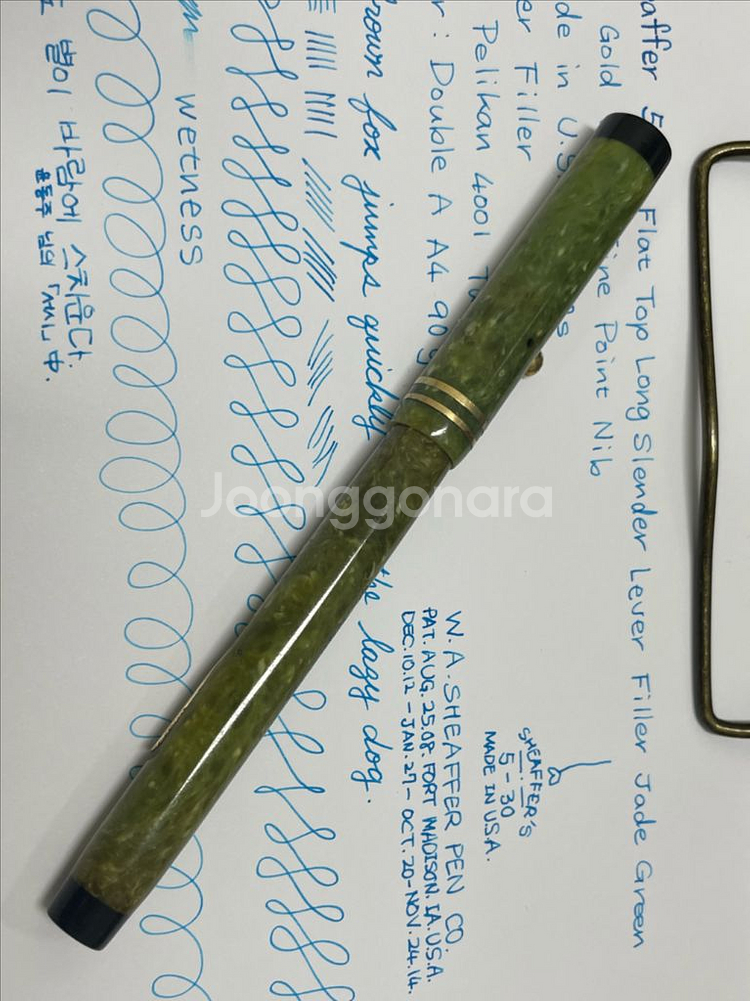 affer 5 Flat Top Long Slender Lever Filler Jade Green
Gold Point Nib
de in U.S.
er Filler
Pelikan 4001
r : Double A A4 90g
rown fox jumps quickly the lazy dog.
wetness
별이 바람에 스치운다.
윤동주 님의 「서시」 中.
SHEAFFER'S
5-30
MADE IN U.S.A.
W.A. SHEAFFER PEN CO.
PAT. AUG. 25.08. FORT MADISON. IA. U.S.A.
DEC. 10.12 - JAN. 27 - OCT. 20 - NOV. 24.14.
Joonggonara